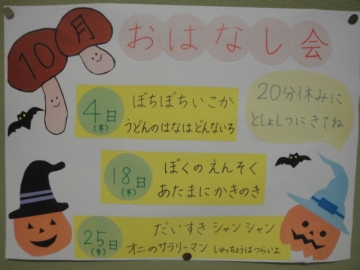 10月
おはなし会
4日
(木)
ぼちぼちいこか
うどんのはなはどんないろ
20分休みに
としょしつにきてね
18日
(木)
ぼくのえんそく
あたまにかきのき
25日
(木)
だいすきシャンシャン
オニのサラリーマン しゅっちょうはつらいよ